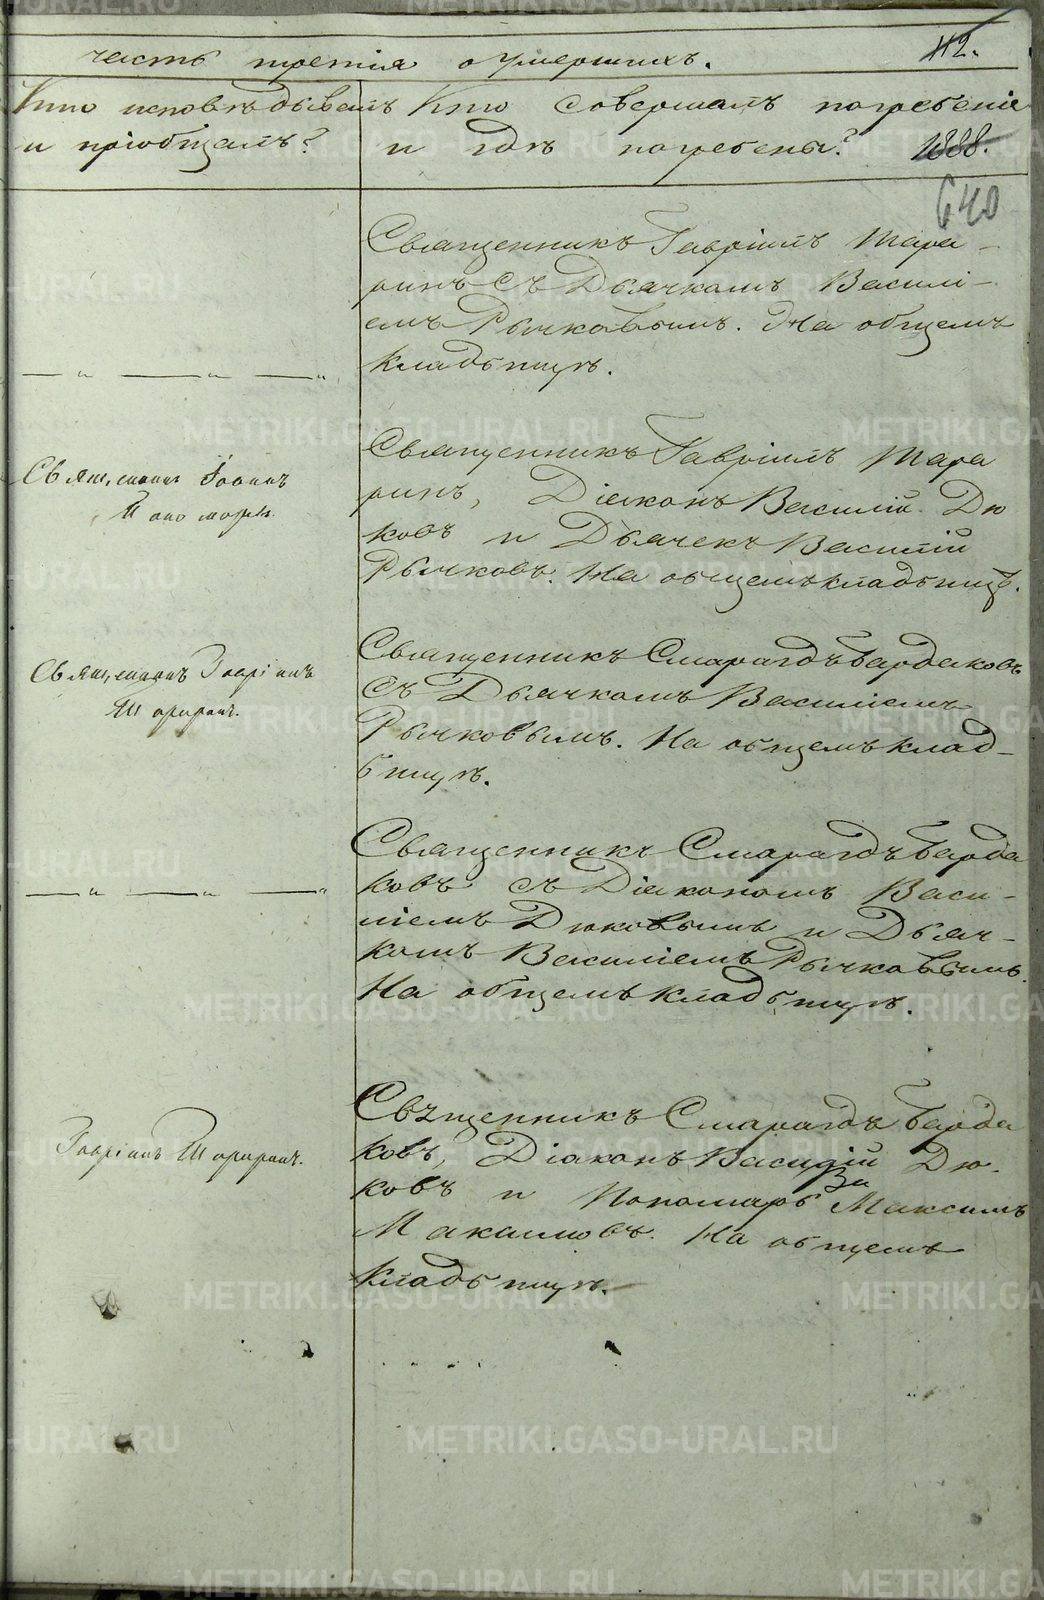 часть третія о умершихъ. 112.
Кто исповѣдывалъ
и пріобщалъ?
Кто совершалъ погребеніе
и гдѣ погребены? 1888.
640
Священникъ Гавріилъ Шара-
ринъ съ Дьячкомъ Василі-
емъ Рычковымъ. На общемъ
кладьбищѣ.
Священникъ Іоаннъ
Пономаревъ
Священникъ Гавріилъ Шара
ринъ, Діаконъ Василій Дю
ковъ и Дьячекъ Василій
Рычковъ. На общемъ кладьбищѣ.
Священникъ Гавріилъ
Шараринъ.
Священникъ Смарагдъ Бардаковъ
съ Дьячкомъ Василіемъ
Рычковымъ. На общемъ клад-
бищѣ.
Священникъ Смарагдъ Барда
ковъ съ Діакономъ Васи-
ліемъ Дюковымъ и Дьяч-
комъ Василіемъ Рычковымъ.
На общемъ кладьбищѣ.
Гавріилъ Шараринъ.
Священникъ Смарагдъ Барда
ковъ, Діаконъ Василій Дю-
ковъ и Пономарь Максимъ
На общемъ
кладьбищѣ.
METRIKI.GASO-URAL.RU